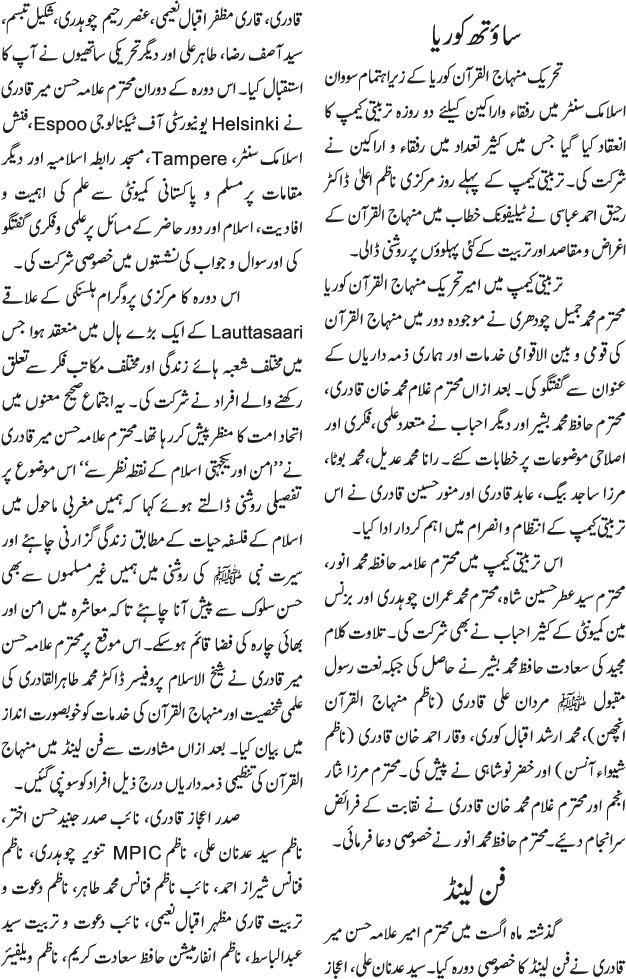 ساؤتھ کوریا
تحریک منہاج القرآن کوریا کے زیر اہتمام سووان
اسلامک سنٹر میں رفقاء واراکین کیلئے دو روزہ تربیتی کیمپ کا
انعقاد کیا گیا جس میں کثیر تعداد میں رفقاء و اراکین نے
شرکت کی۔ تربیتی کیمپ کے پہلے روز مرکزی ناظم اعلیٰ ڈاکٹر
رحیق احمد عباسی نے ٹیلیفونک خطاب میں منہاج القرآن کے
اغراض و مقاصد اور تربیت کے کئی پہلوؤں پر روشنی ڈالی۔
تربیتی کیمپ میں امیر تحریک منہاج القرآن کوریا
محترم محمد جمیل چودھری نے موجودہ دور میں منہاج القرآن
کی قومی و بین الاقوامی خدمات اور ہماری ذمہ داریاں کے
عنوان سے گفتگو کی۔ بعد ازاں محترم غلام محمد خان قادری،
محترم حافظ محمد بشیر اور دیگر احباب نے متعدد علمی، فکری اور
اصلاحی موضوعات پر خطابات کئے۔ رانا محمد عدیل، محمد بوٹا،
مرزا ساجد بیگ، عابد قادری اور منور حسین قادری نے اس
تربیتی کیمپ کے انتظام و انصرام میں اہم کردار ادا کیا۔
اس تربیتی کیمپ میں محترم علامہ حافظ محمد انور،
محترم سید عطر حسین شاہ، محترم محمد عمران چوہدری اور بزنس
مین کمیونٹی کے کثیر احباب نے بھی شرکت کی۔ تلاوت کلام
مجید کی سعادت حافظ محمد بشیر نے حاصل کی جبکہ نعت رسول
مقبول ﷺ مردان علی قادری (ناظم منہاج القرآن
انچھن)، محمد ارشد اقبال کوری، وقار احمد خان قادری (ناظم
شیواء آنسن) اور خضر نوشاہی نے پیش کی۔ محترم مرزا نثار
انجم اور محترم غلام محمد خان قادری نے نقابت کے فرائض
سرانجام دیئے۔ محترم حافظ محمد انور نے خصوصی دعا فرمائی۔
فن لینڈ
گذشتہ ماہ اگست میں محترم امیر علامہ حسن میر
قادری نے فن لینڈ کا خصوصی دورہ کیا۔ سید عدنان علی، اعجاز
قادری، قاری مظفر اقبال نعیمی، عنصر رحیم چوہدری، شکیل تبسم،
سید آصف رضا، طاہر علی اور دیگر تحریکی ساتھیوں نے آپ کا
استقبال کیا۔ اس دورہ کے دوران محترم علامہ حسن میر قادری
نے Helsinki یونیورسٹی آف ٹیکنالوجی Espoo، فنش
اسلامک سنٹر، Tampere، مسجد رابطہ اسلامیہ اور دیگر
مقامات پر مسلم و پاکستانی کمیونٹی سے علم کی اہمیت و
افادیت، اسلام اور دور حاضر کے مسائل پر علمی و فکری گفتگو
کی اور سوال و جواب کی نشستوں میں خصوصی شرکت کی۔
اس دورہ کا مرکزی پروگرام ہلسنکی کے علاقے
Lauttasaari کے ایک بڑے ہال میں منعقد ہوا جس
میں مختلف شعبہ ہائے زندگی اور مختلف مکاتب فکر سے تعلق
رکھنے والے افراد نے شرکت کی۔ یہ اجتماع صحیح معنوں میں
اتحاد امت کا منظر پیش کر رہا تھا۔ محترم علامہ حسن میر قادری
نے ’’امن اور یکجہتی اسلام کے نقطہ نظر سے‘‘ اس موضوع پر
تفصیلی روشنی ڈالتے ہوئے کہا کہ ہمیں مغربی ماحول میں
اسلام کے فلسفہ حیات کے مطابق زندگی گزارنی چاہئے اور
سیرت نبی ﷺ کی روشنی میں ہمیں غیر مسلموں سے بھی
حسن سلوک سے پیش آنا چاہئے تاکہ معاشرہ میں امن اور
بھائی چارہ کی فضا قائم ہوسکے۔ اس موقع پر محترم علامہ حسن
میر قادری نے شیخ الاسلام پروفیسر ڈاکٹر محمد طاہر القادری کی
علمی شخصیت اور منہاج القرآن کی خدمات کو خوبصورت انداز
میں بیان کیا۔ بعد ازاں مشاورت سے فن لینڈ میں منہاج
القرآن کی تنظیمی ذمہ داریاں درج ذیل افراد کو سونپی گئیں۔
صدر اعجاز قادری، نائب صدر جنید حسن اختر،
ناظم سید عدنان علی، ناظم MPIC تنویر چوہدری، ناظم
فنانس شیراز احمد، نائب ناظم فنانس محمد طاہر، ناظم دعوت و
تربیت قاری مظہر اقبال نعیمی، نائب دعوت و تربیت سید
عبدالباسط، ناظم انفارمیشن حافظ سعادت کریم، ناظم ویلفیئر